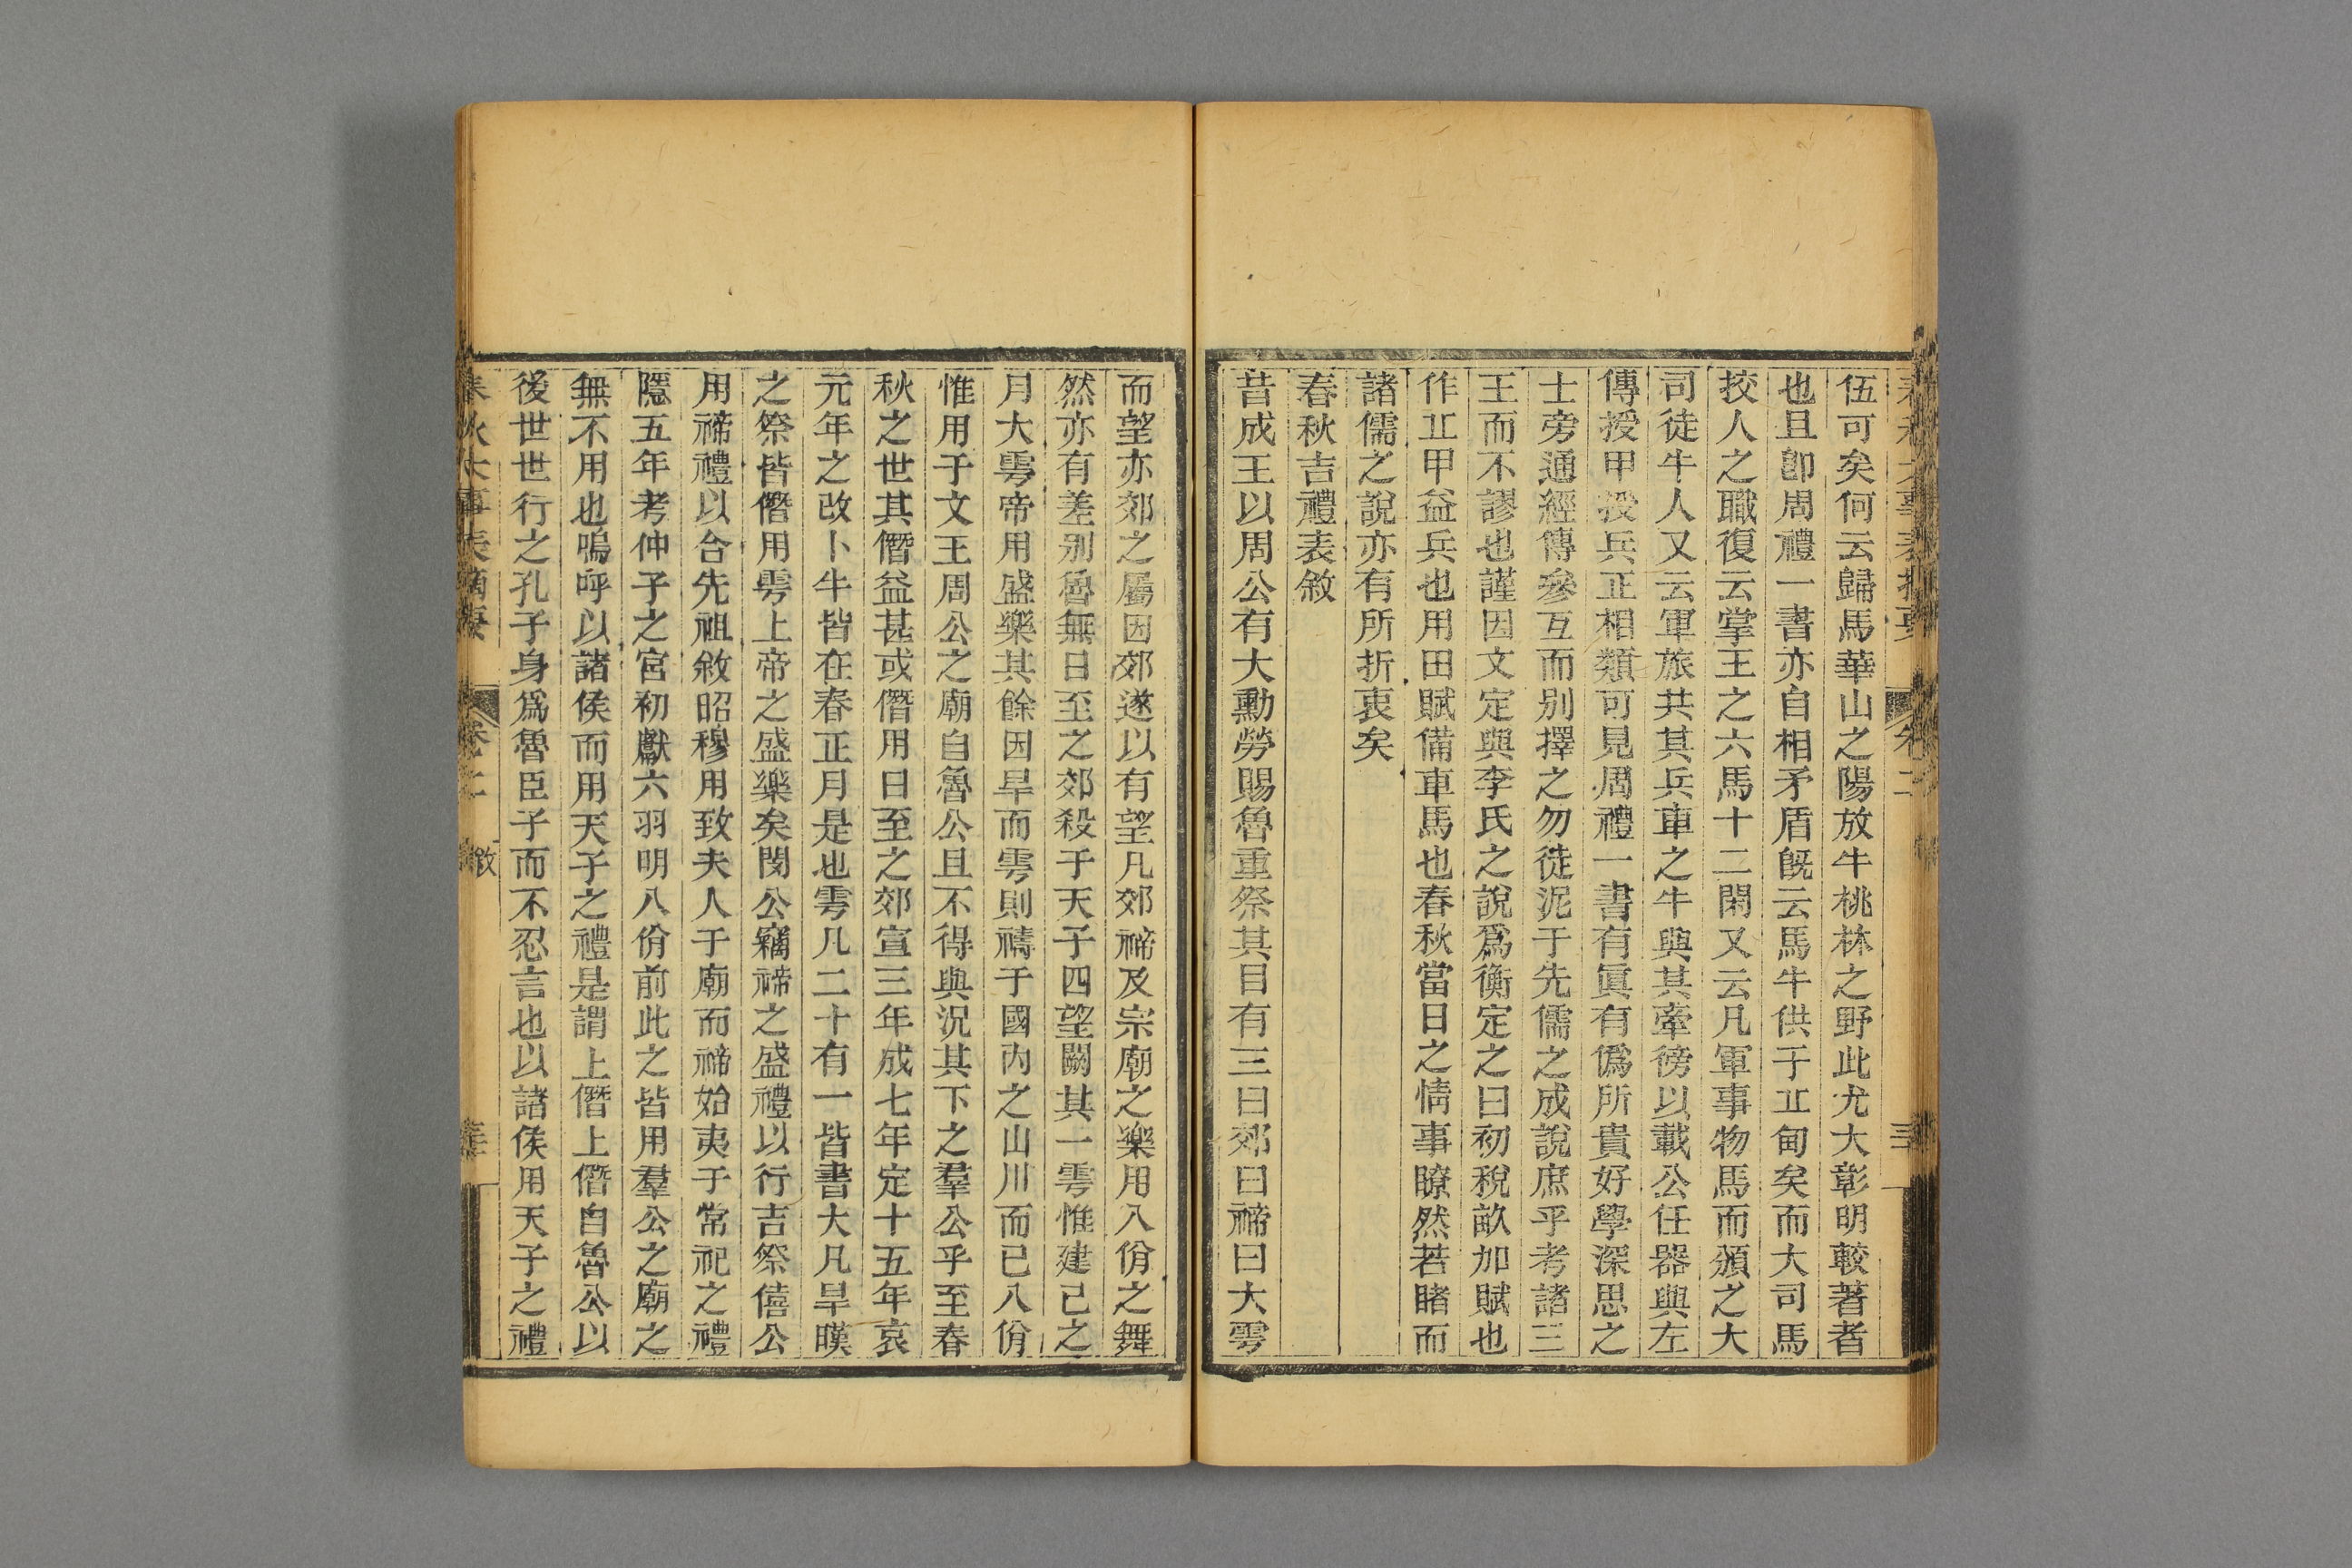 伍可矣何云歸馬華山之陽放牛桃林之野此尤大彰明較著者
也且卽周禮一書亦自相矛盾旣云馬牛供于丘甸矣而大司馬
挍人之職復云掌王之六馬十二閑又云凡軍事物馬而頒之大
司徒牛人又云軍旅共其兵車之牛與其牽徬以載公任器與左
傳授甲授兵正相類可見周禮一書有眞有僞所貴好學深思之
士旁通經傳參互而别擇之勿徒泥于先儒之成說庶乎考諸三
王而不謬也謹因文定與李氏之說爲衡定之曰初稅畝加賦也
作丘甲益兵也用田賦備車馬也春秋當日之情事瞭然若睹而
諸儒之說亦有所折衷矣
春秋吉禮表敘
昔成王以周公有大勳勞賜魯重祭其目有三曰郊曰禘曰大雩
而望亦郊之屬因郊遂以有望凡郊禘及宗廟之樂用八佾之舞
然亦有差别魯無日至之郊殺于天子四望闕其一雩惟建巳之
月大雩帝用盛樂其餘因旱而雩則禱于國內之山川而已八佾
惟用于文王周公之廟自魯公且不得與況其下之羣公乎至春
秋之世其僭益甚或僭用日至之郊宣三年成七年定十五年哀
元年之改卜牛皆在春正月是也雩凡二十有一皆書大凡旱暵
之祭皆僭用雩上帝之盛樂矣閔公竊禘之盛禮以行吉祭僖公
用禘禮以合先祖敘昭穆用致夫人于廟而禘始夷于常祀之禮
隱五年考仲子之宮初獻六羽明八佾前此之皆用羣公之廟之
無不用也嗚呼以諸侯而用天子之禮是謂上僭上僭自魯公以
後世世行之孔子身爲魯臣子而不忍言也以諸侯用天子之禮
春秋大事表摘要 卷之二 敘